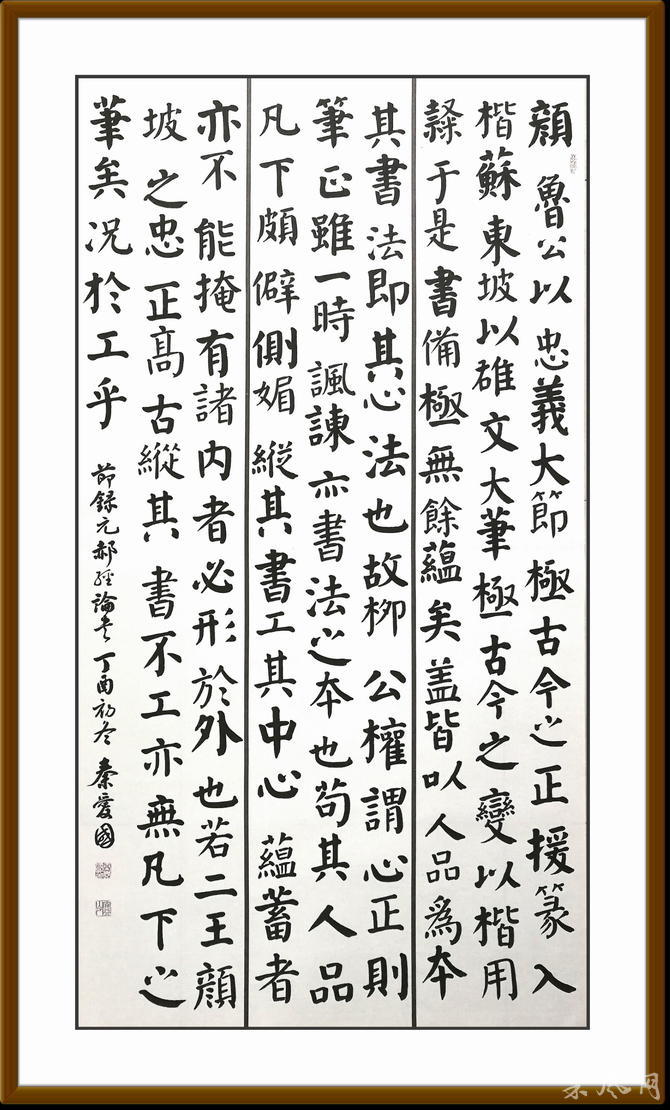 顔魯公以忠義大節極古今之正援篆入
楷蘇東坡以雄文大筆極古今之變以楷用
隸于是書備極無餘蘊矣盖皆以人品爲本
其書法即其心法也故柳公權謂心正則
筆正雖一時諷諫亦書法之本也苟其人品
凡下頗僻側媚縱其書工其中心蘊蓄者
亦不能掩有諸内者必形於外也若二王顔
坡之忠正高古縱其書不工亦無凡下之
筆矣况於工乎
節録元郝經論書丁酉初冬秦愛國